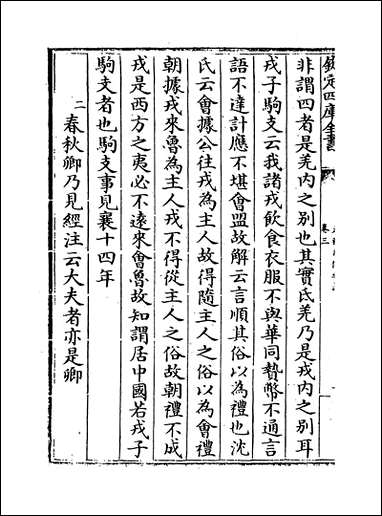 欽定四庫全書
卷三
非謂四者是羌内之别也其實氐羌乃是戎内之别耳
戎子駒支云我諸戎飲食衣服不與華同贄幣不通言
語不達計應不堪會盟故解云言順其俗以為禮也沈
氏云會據公往戎為主人故得隨主人之俗以為會禮
朝據戎來魯為主人戎不得從主人之俗故朝禮不成
戎是西方之夷必不逺來會魯故知謂居中國若戎子
駒支者也駒支事見襄十四年
二春秋卿乃見經注云大夫者亦是卿